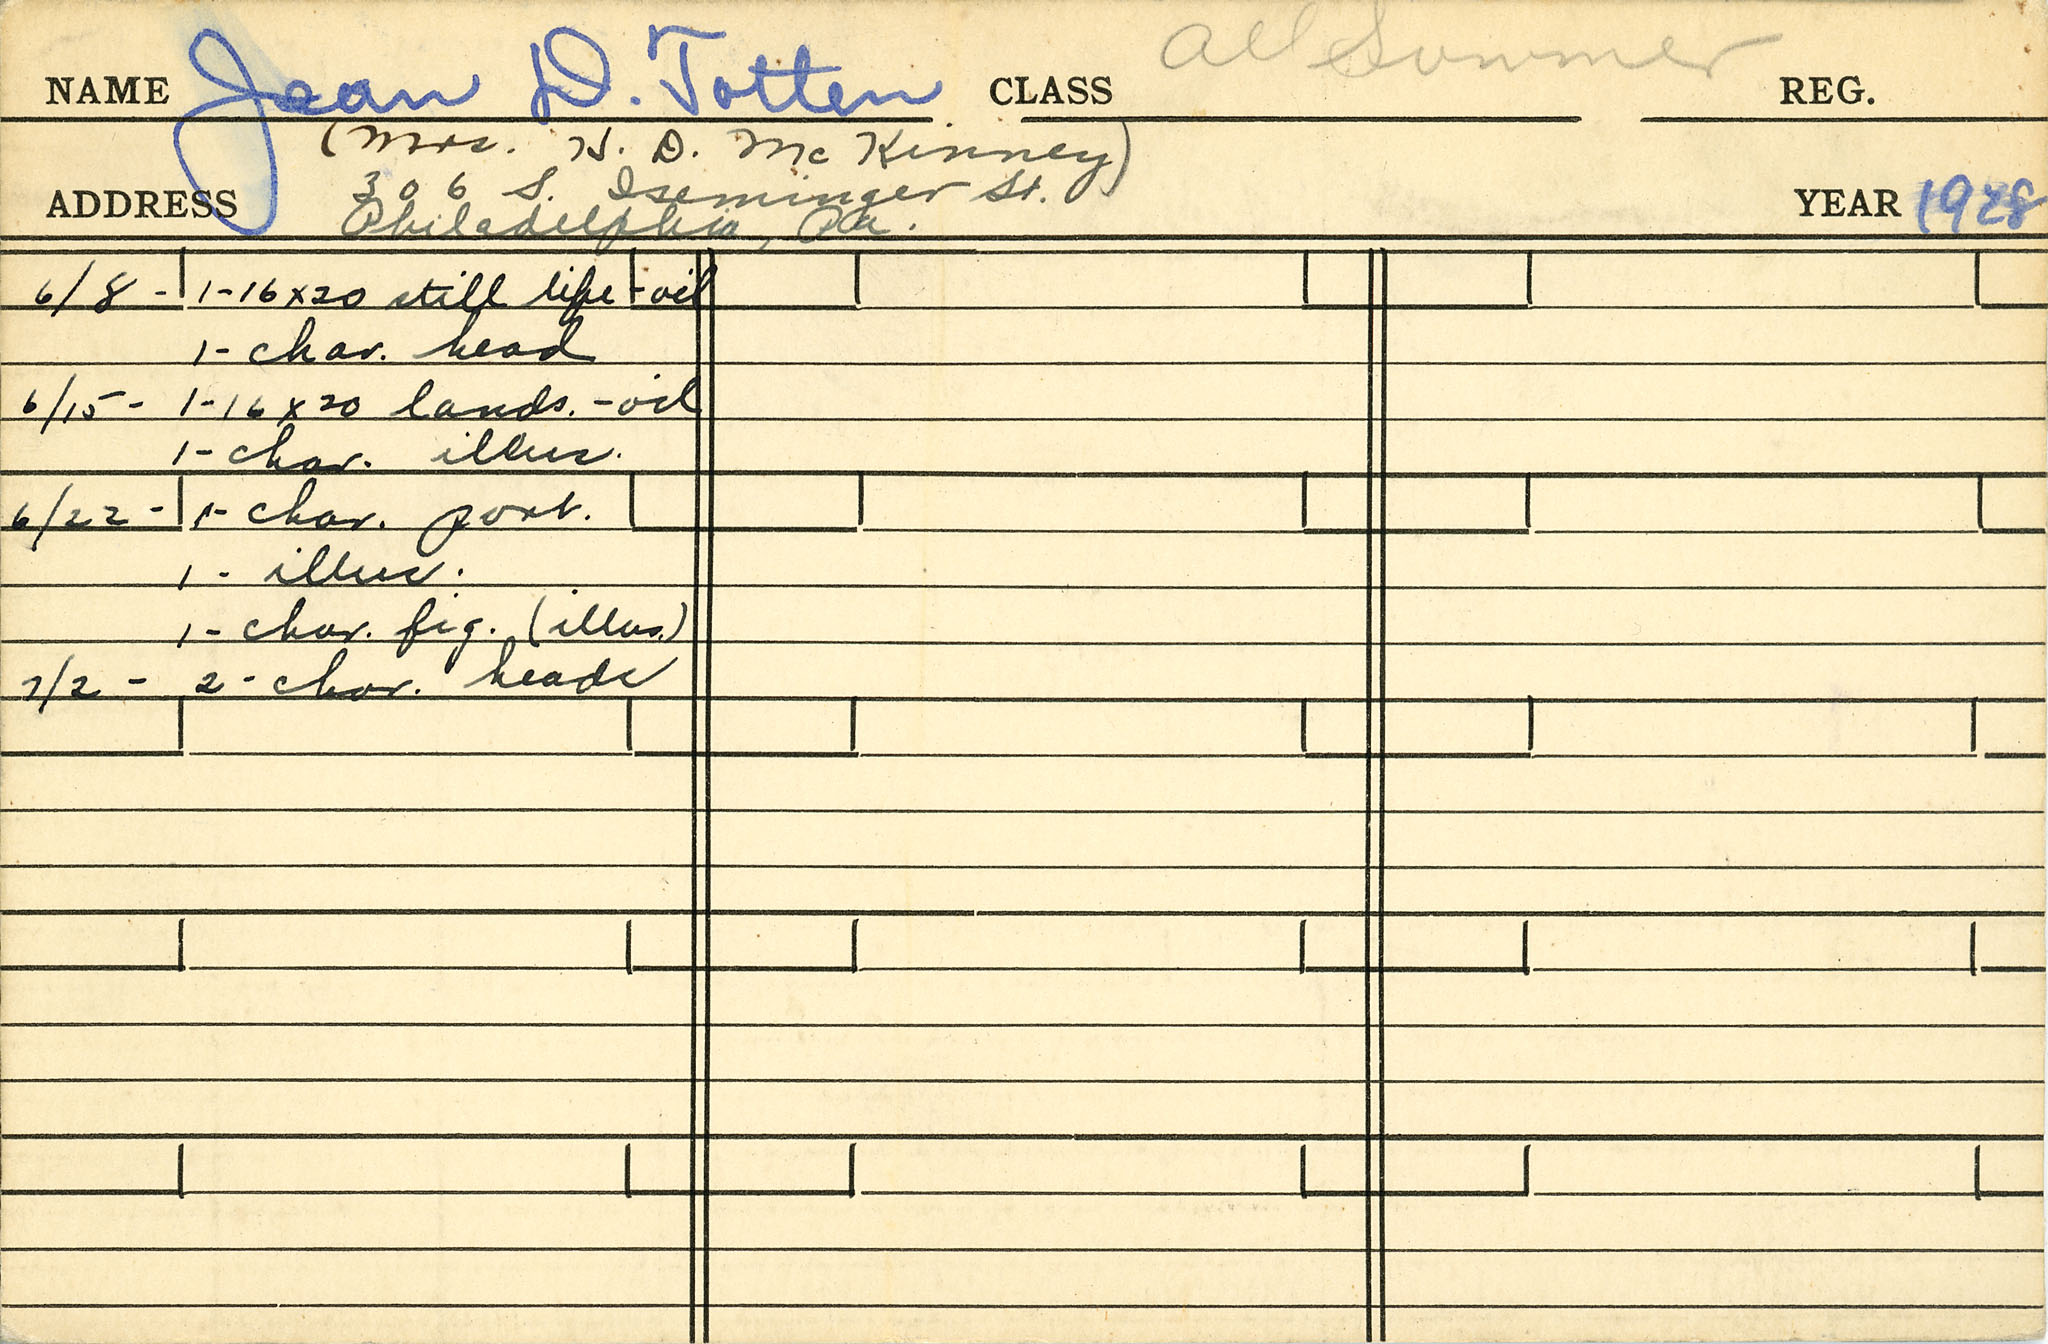 NAME Jean D. Totten CLASS All Summer REG.
(Mrs. H. D. McKinney)
ADDRESS 306 S. Iseminger St. YEAR 1928
Philadelphia, Pa.
6/8 - 1-16x20 still life - oil
1- char. head
6/15 - 1-16x20 lands. - oil
1- char. illus.
6/22 - 1- char. port.
1 - illus.
1- char. fig. (illus.)
7/2 - 2 - char. heads